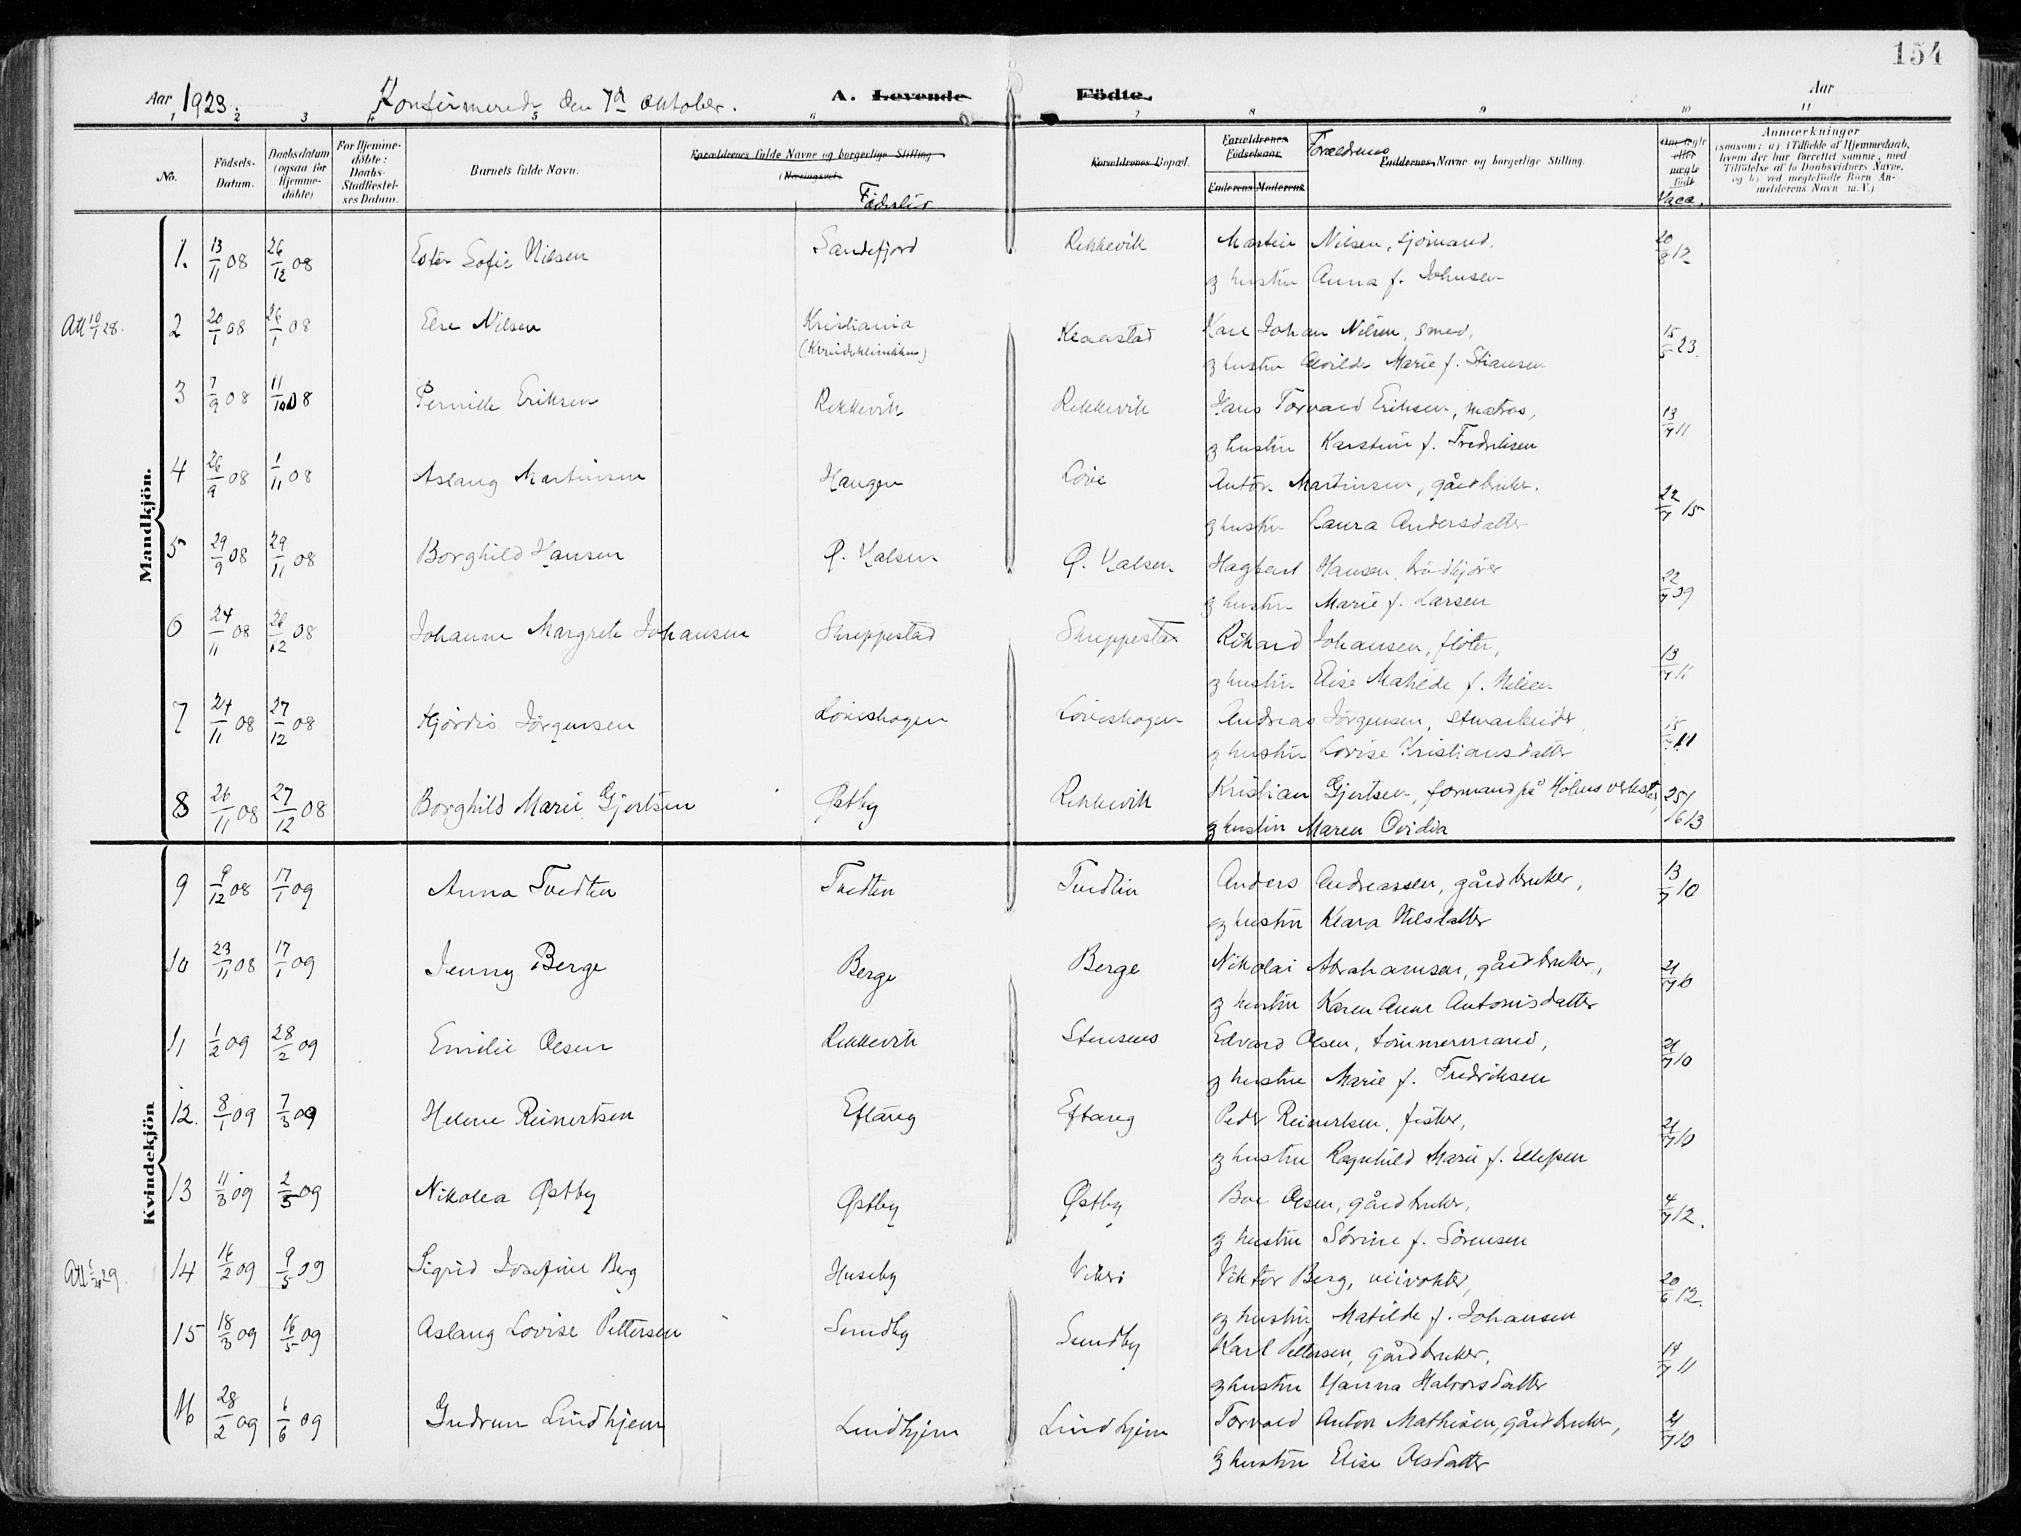 154
Aar 1923. Konfirmerede den 7de oktober. A. Levende Födte. Aar
1 2 3 4 5 6 7 8 9 10 11
No. Födsels-Datum. Daabsdatum (ogsaa for Hjemmedöbte) For Hjemmedöbte: Daabs-Stadfæstelses Datum. Barnets fulde Navn. Forældrenes fulde Navne og borgerlige Stilling (Næringsvei. Fødselsir Forældrenes Bopæl. Forældrenes Födselsaar Faderens Moderens Forældrenes Faddernes Navne og borgerlige Stilling. Om ægte eller uægte födt. Vacc. Anmærkninger (saasom: a) i Tilfælde af Hjemmedaab, hvem der har forrettet samme, med Tilföielse af to Daabsvidners Navne. og b) ved uægtefödte Börn Anmelderens Navn m. V.)
Mandkjön.
1. 13/11 08 26/12 08 Ester Sofie Nilsen Sandefjord Rekkevik Martin Nilsen, sjømand.
og hustru Anna f. Johnsen 20/8 12
Att 10/1 28. 2 20/1 08 26/1 08 Else Nilsen Kristiania Klaastad Karl Johan Nilsen, smed,
(Kvindeklinikken) og hustru Alvilde Marie f. Stiansen 15/5 23.
3 7/9 08 11/10 08 Pernille Eriksen Rekkevik Rekkevik Hans Torvald Eriksen, matros,
og hustru Karstine f. Fredriksen 13/7 11
4 26/9 08 1/11 08 Aslaug Martinsen Haugen Løve Anton Martinsen, gårdbruker.
og hustru Laura Andersdatter 22/7 15
5 29/9 08 29/11 08 Borghild Hansen Ø. Halsen Ø. Halsen Hagbart Hansen, brødkjører
og hustru Marie f. Larsen 22/7 09
6 24/11 08 26/12 08 Johanne Margrete Johansen Skreppestad Skreppestad Rikard Johansen, fløter,
og hustru Elise Matilde f. Nilsen 13/7 11
7 24/11 08 27/12 08 Hjørdis Jørgensen Løveskogen Løveskogen Andreas Jørgensen, stenarbeider
og hustru Lovise Kristiansdatter 11
8 26/11 08 27/12 08 Borghild Marie Gjertsen Østby Rekkevik Kristian Gjertsen, formand på Holms verksted,
og hustru Maren Ovidia 25/6 13
Kvindekjön
9 9/12 08 17/1 09 Anna Tvedten Tvedten Tvedten Anders Andreassen, gårdbruker,
og hustru Klara Nilsdatter 13/7 10
10 23/11 08 17/1 09 Jenny Berge Berge Berge Nikolai Abrahamsen, gårdbruker,
og hustru Karen Anne Antonisdatter 21/7 10
11 1/2 09 28/2 09 Emilie Olsen Rekkevik Stensnes Edvard Olsen, tømmermand,
og hustru Marie f. Fredriksen 21/7 10
12. 8/1 09 7/3 09 Helene Reinertsen Eftang Eftang Peder Reinertsen, fisker,
og hustru Ragnhild Marie f. Ellefsen 21/7 10
13 11/3 09 2/5 09 Nikolea Østby Østby Østby Boe Olsen, gårdbruker,
og hustru Sørine f. Sørensen 4/7 12.
14 16/2 09 9/5 09 Sigrid Josefine Berg Huseby Viktor Berg, veivokter,
og hustru Matilde f. Johansen 20/6 12.
15 18/3 09 16/5 09 Aslaug Lovise Pettersen Sundby Sundby Karl Pettersen, gårdbruker,
og hustru Hanna Halvorsdatter 14/7 11
16 28/2 09 6/6 09 Gudrun Lindhjem Lindhjem Lindhjem Torvald Anton Mathisen, gårdbruker,
og hustru Elise Olsdatter 21/7 10